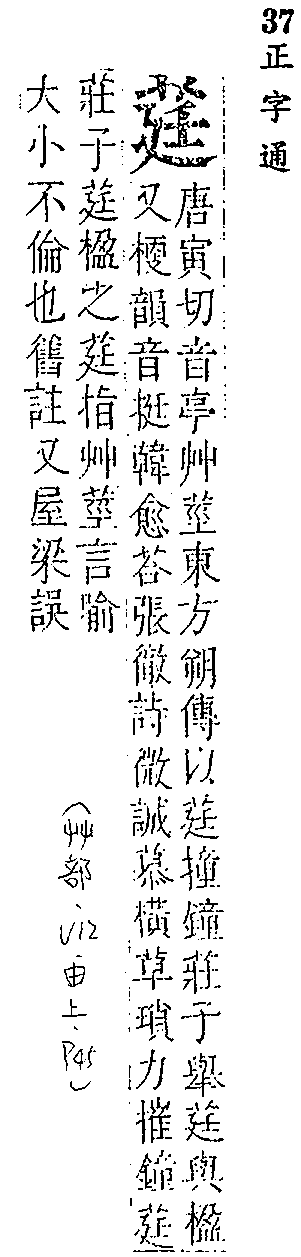 37
正字通
莛
唐寅切音亭艸莖東方朔傳以莛撞鐘莊子舉莛與楹
又梗韻音挺韓愈荅張徹詩微誠慕橫草瑣力摧鐘莛
莊子莛楹之莛指艸莖言喻
大小不倫也舊註又屋梁誤
(艸部、V12申上、P45)